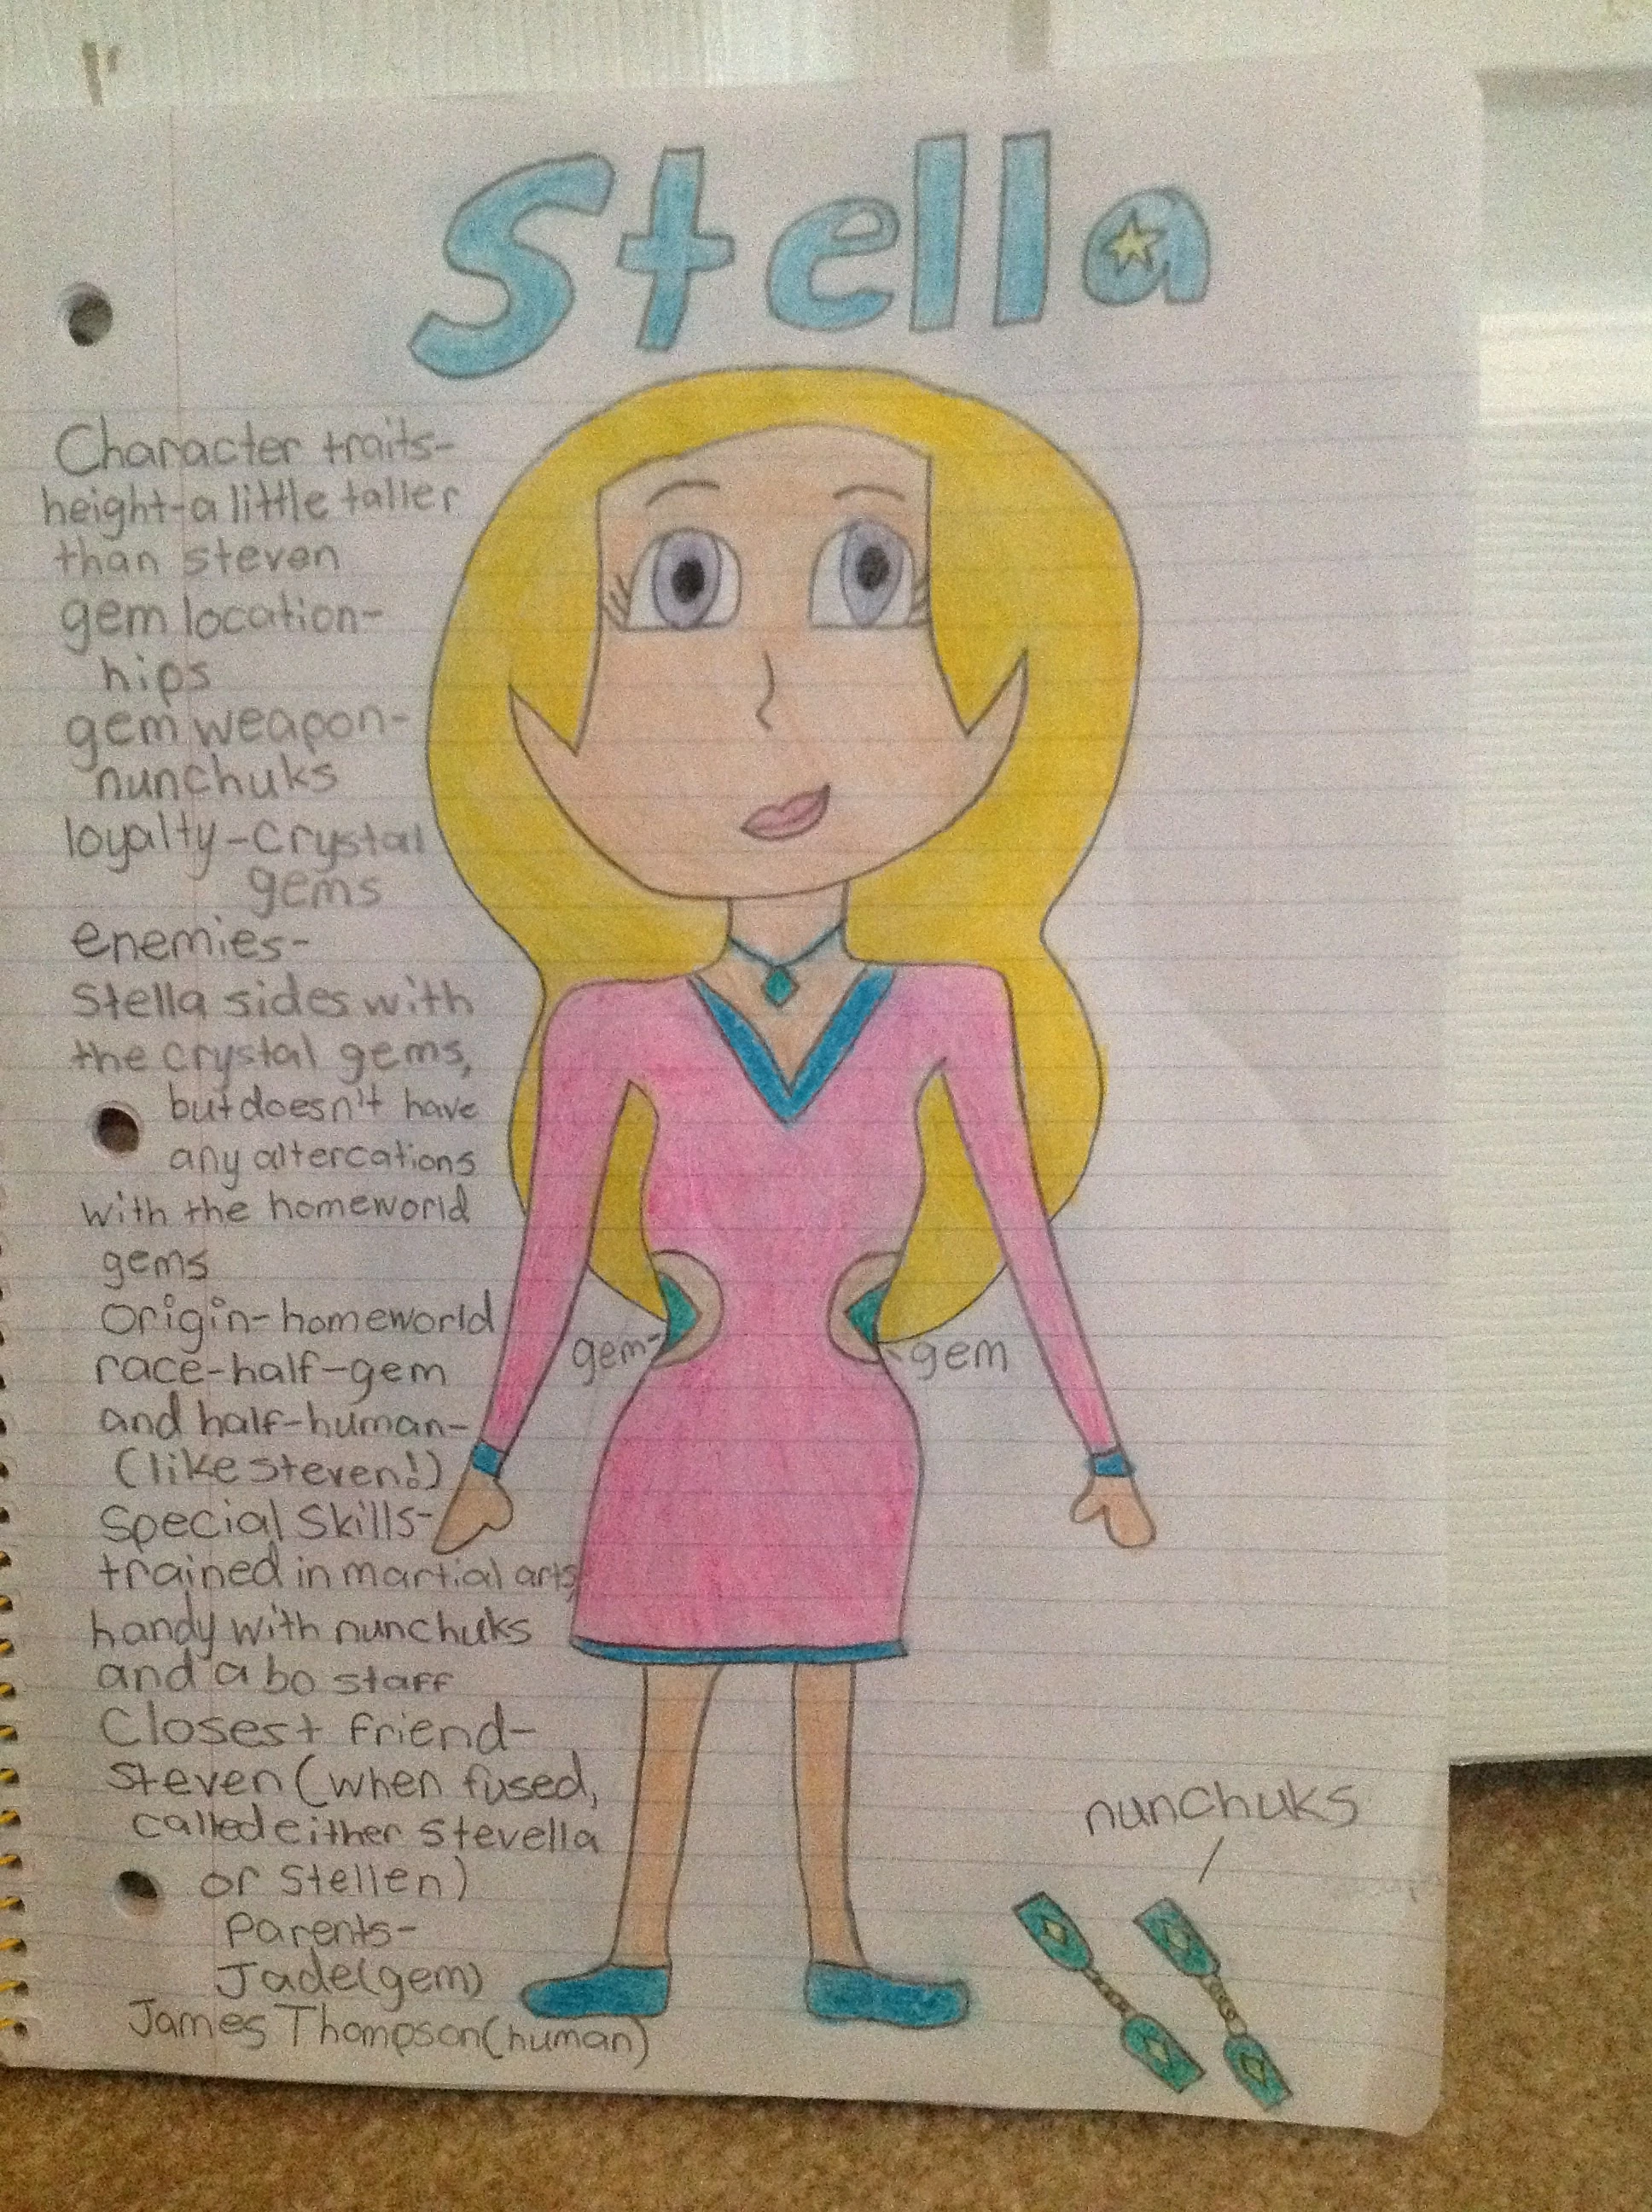 Stella
Character traits-
height-a little taller
than steven
gem location-
hips
gem weapon-
nunchuks
loyalty-Crystal
gems
enemies-
Stella sides with
the crystal gems,
but doesn't have
any altercations
with the homeworld
gems
Origin-homeworld
race-half-gem
and half-human-
(like steven!)
Special Skills-
trained in martial arts,
handy with nunchuks
and a bo staff
Closest friend-
Steven (when fused,
called either Stevella
or Stellen)
Parents-
Jade(gem)
James Thompson(human)
gem-
gem
nunchuks